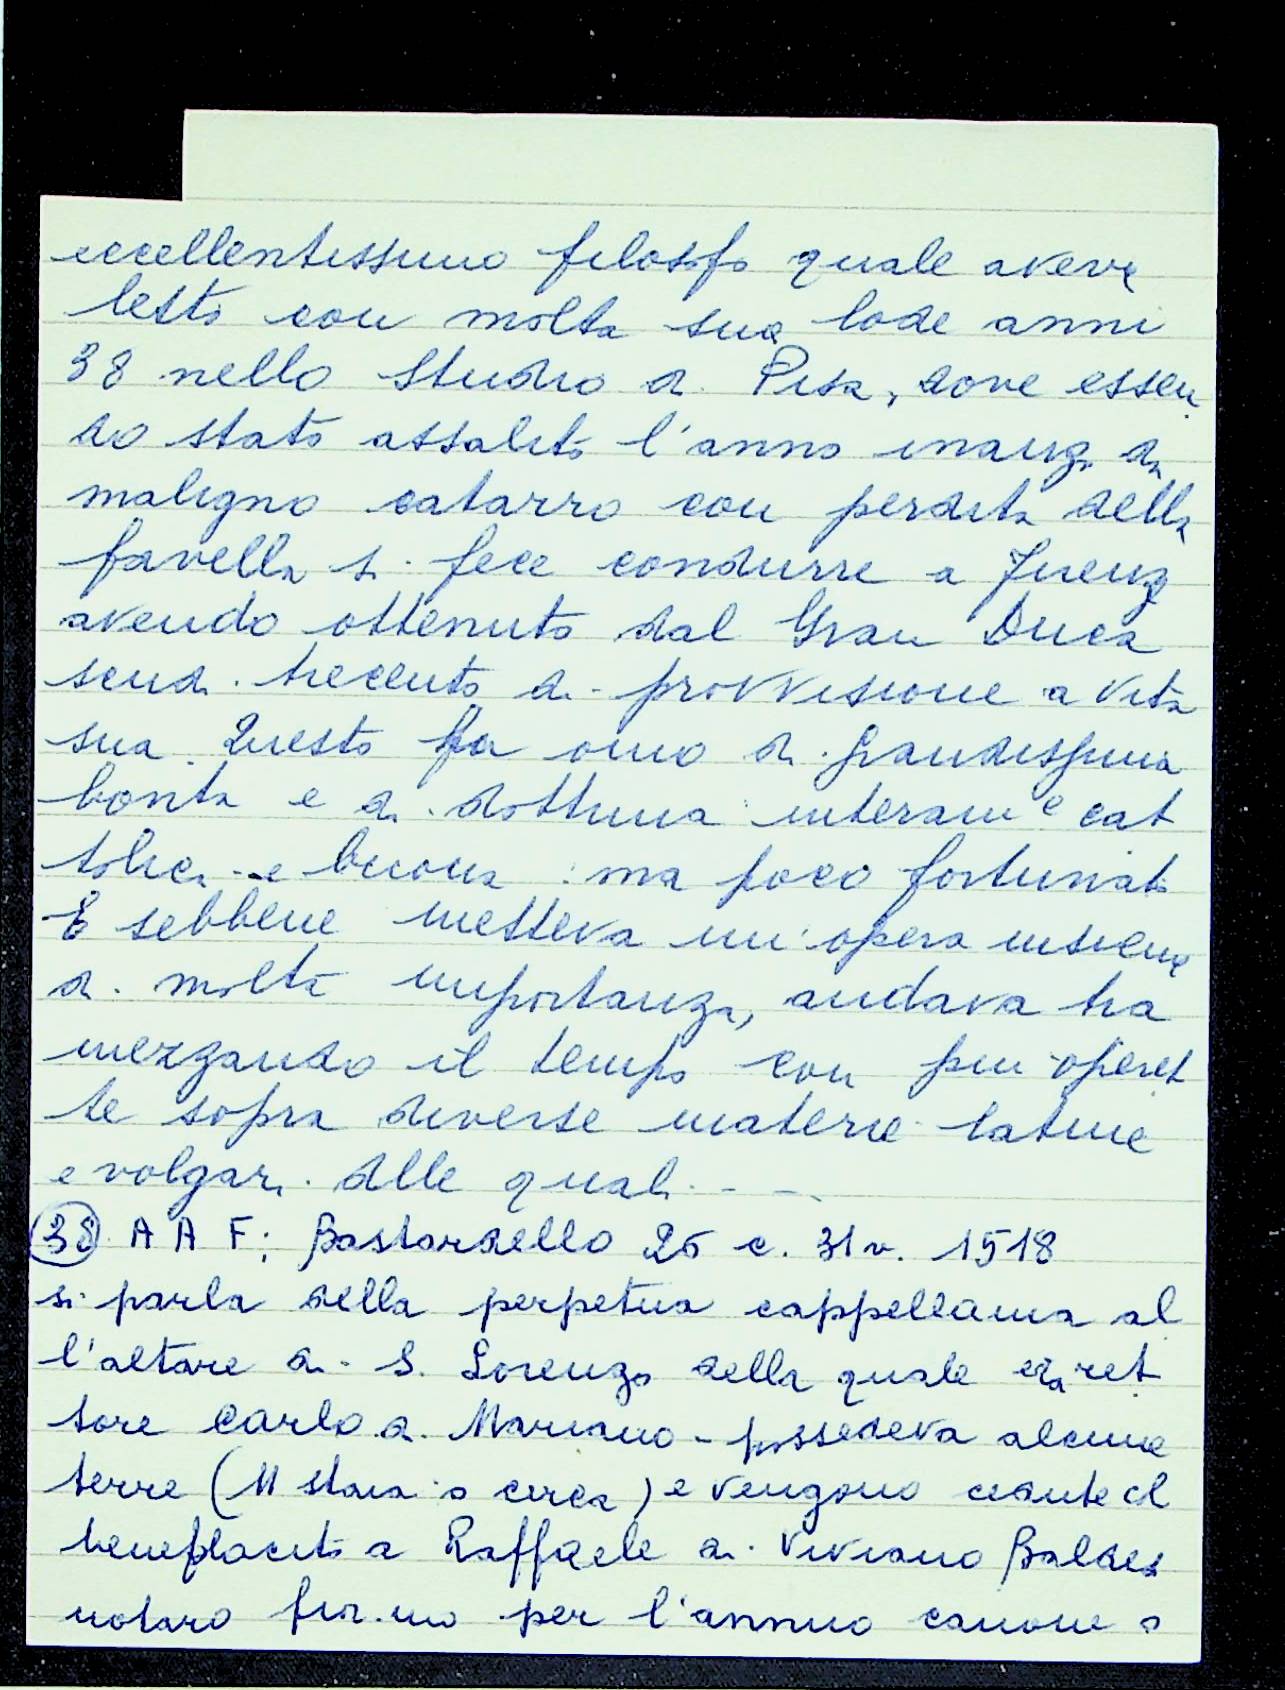 eccellentissimo filosofo quale aveva
letto con molta sua lode anni
38 nello Studio di Pisa, dove essen
do stato assalito l'anno inanzi da
maligno catarro con perdita della
favella si fece condurre a Firenz
avendo ottenuto dal Gran Duca
scudi trecento di provvisione a vita
sua. Questo fu omo di grandissima
bontà e di dottrina interam e cat
tolica e buona: ma poco fortunato
E sebbene metteva un'opera insieme
di molta importanza, andava tra
mezzando il tempo con piu operet
te sopra diverse materie latine
e volgari. Alle quali - - -
38 A A F; Bastardello 26 c. 31 v. 1518
si parla della perpetua cappellania al
l'altare di S. Lorenzo della quale era ret
tore Carlo di Mariano - possedeva alcune
terre (11 staia o circa) e vengono cedute al
beneplacito a Raffaele di Viviano Baldes
notaro fior.no per l'annuo canone o